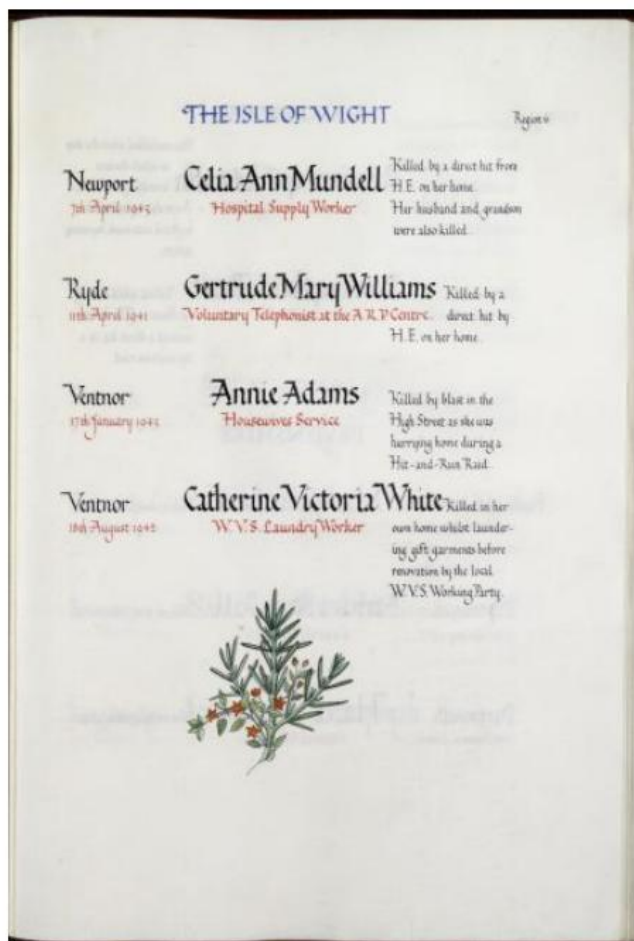 THE ISLE OF WIGHT
Region 6
Newport
7th April 1943
Celia Ann Mundell
Hospital Supply Worker
Killed by a direct hit from
H.E. on her home.
Her husband and grandson
were also killed.
Ryde
11th April 1941
Gertrude Mary Williams
Voluntary Telephonist at the A.R.P. Centre.
Killed by a
direct hit by
H.E. on her home.
Ventnor
17th January 1943
Annie Adams
Housewives Service
Killed by blast in the
High Street as she was
hurrying home during a
Hit-and-Run Raid.
Ventnor
18th August 1942
Catherine Victoria White
W.V.S. Laundry Worker
Killed in her
own home whilst launder-
ing gift garments before
renovation by the local
W.V.S. Working Party.